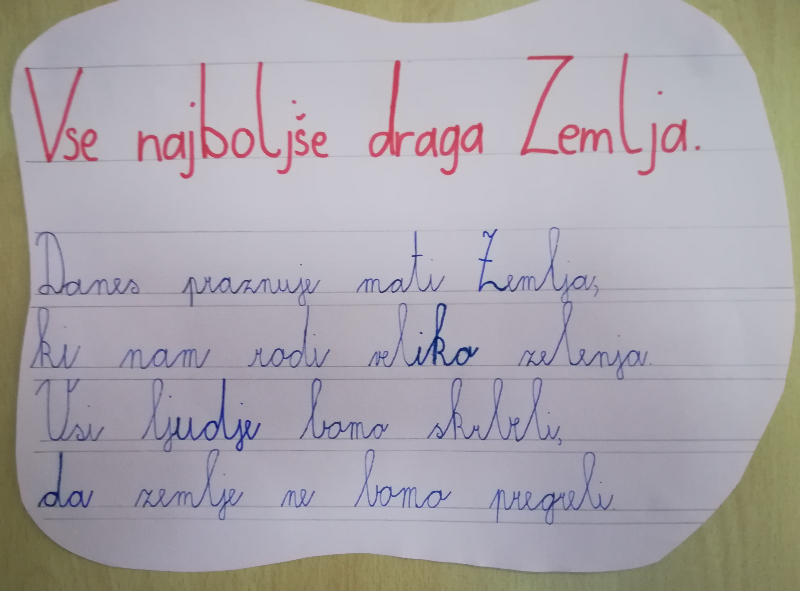 Vse najboljše draga Zemlja.
Danes praznuje mati Zemlja,
ki nam rodi veliko zelenja.
Vsi ljudje bomo skrbeli,
da zemlje ne bomo pregreli.